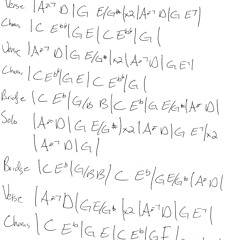 Verse |A#7 D|G E/G#|x2|A#7 D|G E7|
Chorus |C Eb|G E|C Eb|G|
Verse |A#7 D|G E/G#|x2|A#7 D|G E7|
Chorus |C Eb|G E|C Eb|G|
Bridge |C Eb|G/B B|C Eb|G E/G#|A#7 D|
Solo |A#7 D|G E/G#|x2|A#7 D|G E7|x2
|A#7 D|G|
Bridge |C Eb|G/B B|C Eb|G E/G#|A#7 D|
Verse |A#7 D|G E/G#|x2|A#7 D|G E7|
Chorus |C Eb|G E|C Eb|G E|